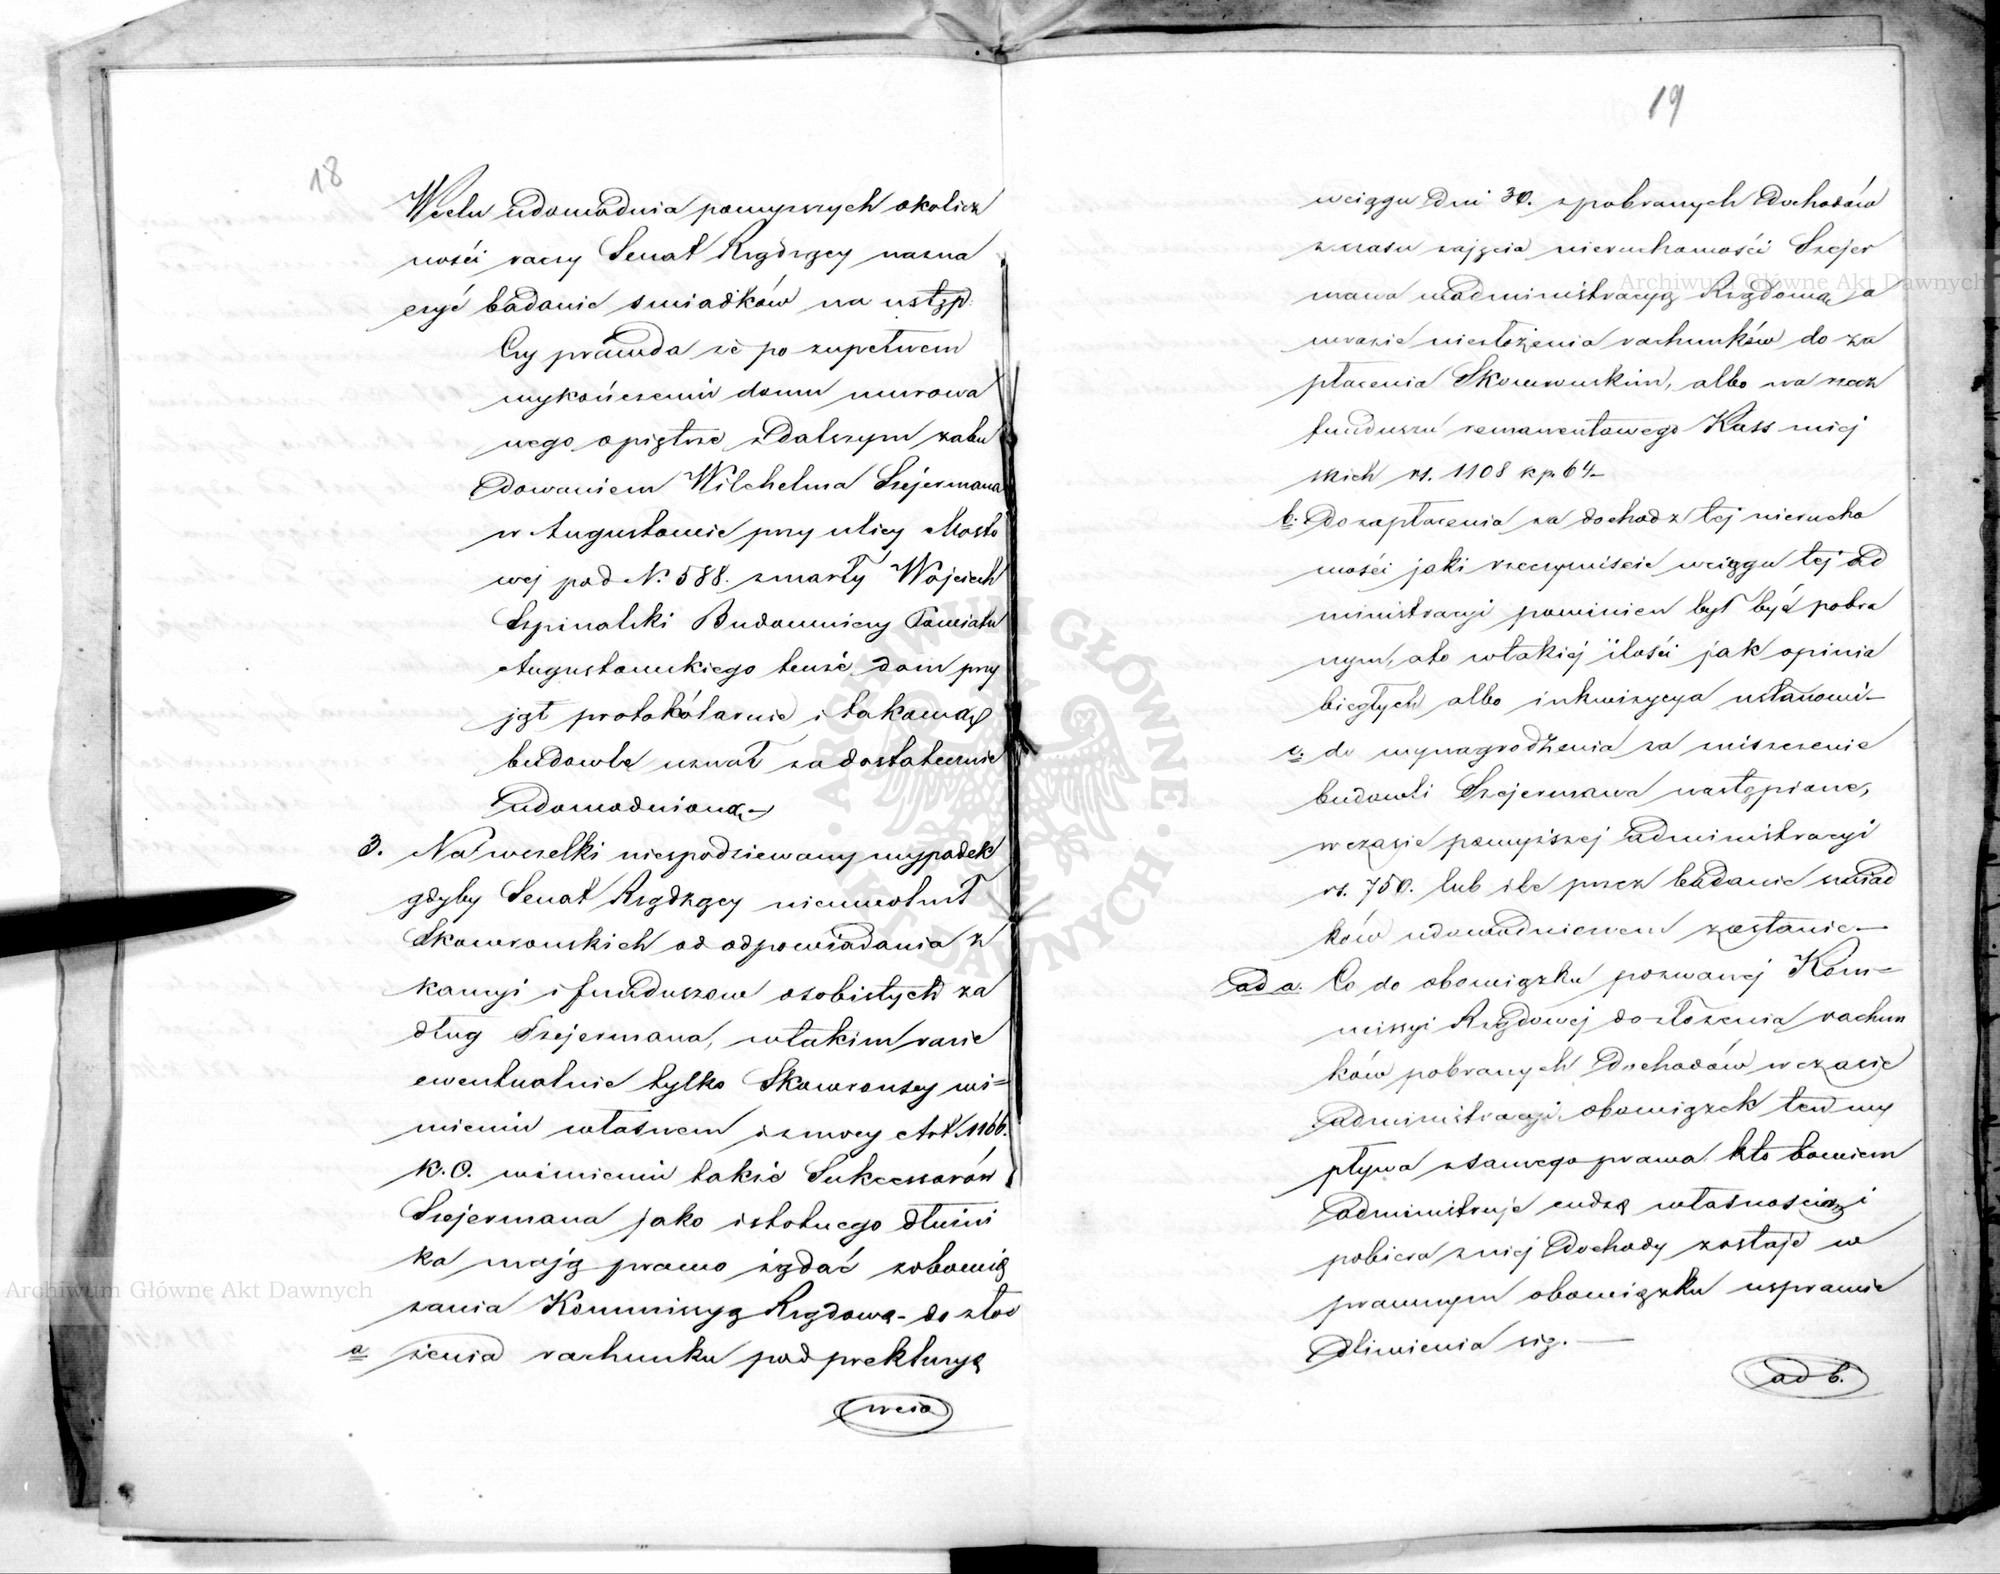 18
W celu udowodnia powyższych okolicz
ności raczy Senat Rządzący nazna
czyć badanie swiadków na nstęp.
Czy prawda że po zupełnem
wykończeniu domu murowa
nego o piętrze z dalszym zabu
dowaniem Wilchelma Szejermana
w Augustowie przy ulicy Mosto
wej pod N. 588. zmarły Wojciech
Szpinalski Budowniczy Powiatu
Augustowskiego tenże dom przy
jął protokólarnie i takową
budowlę uznał za dostatecznie
udowodnioną.—
3. Na wszelki niespodziewany wypadek
gdyby Senat Rządzący nieuwolnił
Skowrońskich od odpowiadania z
kaucyi i funduszow osobistych za
dług Szejermana, w takim razie
ewentualnie tylko Skowrońscy wi=
mieniu własnem i z mocy Art. 1166.
K.C. wimieniu także Sukcessorów
Szejermana jako istotnego dłużni
ka mają prawo żądać zobowią
zania Kommissyą Rządową - do zło
a żenia rachunku pod prekluzyą
wcią
19
wciągu dni 30. z pobranych dochodów
z czasu zajęcia nieruchomości Szejer
mana w administracyą Rządową, a
w razie niezłożenia rachunków do za
płacenia Skowrońskim, albo na rzecz
funduszu remanentowego Kass miej
skich rs. 1108 kp. 64—
b. Do zapłacenia za dochód z tej nierucho
mości jaki rzeczywiście wciągu tej ad
ministracyi powinien był być pobra
nym, a to w takiej ilości jak opinia
biegłych albo inkwizycya ustanowi—
c. do wynagrodzenia za zniszczenie
budowli Szejermana nastąpione,
w czasie powyższej administracyi
rs. 750. lub ile przez badanie świad
ków udowodnionem zostanie—
ad a. Co do obowiązku pozwanej Kom=
missyi Rządowej do złożenia rachun
ków pobranych dochodów w czasie
administracyi obowiązek ten wy
pływa z samego prawa kto bowiem
administruje cudzą własnością i
pobiera z niej dochody zostaje w
prawnym obowiązku usprawie
dliwienia się.—
ad b.
Archiwum Główne Akt Dawnych
Archiwum Główne Akt Dawnych
ARCHIWUM GŁÓWNE AKT DAWNYCH